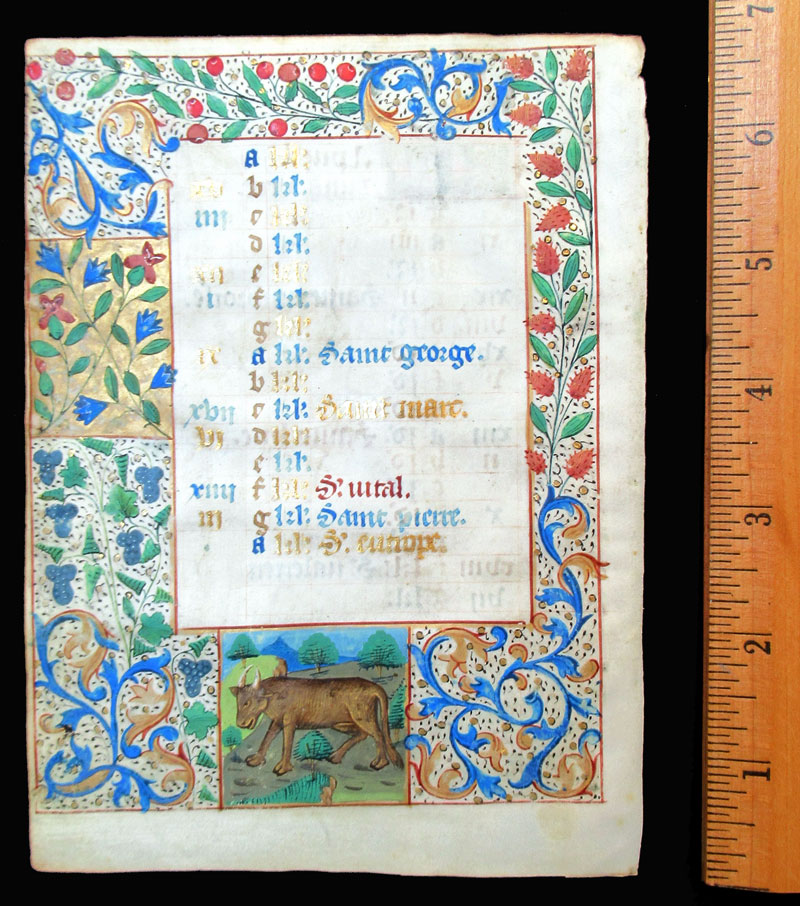 a kl:
b kl:
iiij c kl:
d kl:
e kl:
f kl:
g kl:
ix a kl: Saint george.
b kl:
xvij c kl: Saint marc.
vj d kl:
e kl:
xiiij f kl: St vital.
iij g kl: Saint pierre.
a kl: St eutrope.
7
6
5
4
3
2
1